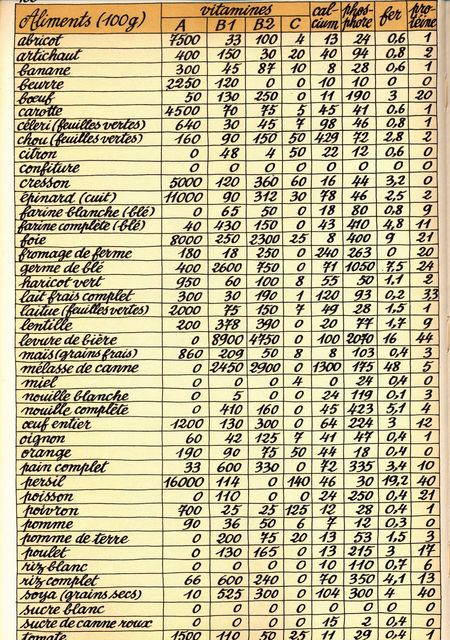 Aliments (100g) vitamines calcium phosphore fer protéine
A B1 B2 C
abricot 7500 33 100 4 13 24 0,6 1
artichaut 400 150 30 20 40 94 0,8 2
banane 300 45 87 10 8 28 0,6 1
beurre 2250 120 0 0 10 10 0 0
bœuf 50 130 250 0 11 190 3 20
carotte 4500 70 75 5 45 41 0,6 1
céleri (feuilles vertes) 640 30 45 7 98 46 0,8 1
chou (feuilles vertes) 160 90 150 50 429 72 2,8 2
citron 0 48 4 50 22 12 0,6 0
confiture 0 0 0 0 0 0 0 0
cresson 5000 120 360 60 16 44 3,2 0
épinard (cuit) 11000 90 312 30 78 46 2,5 2
farine blanche (blé) 0 65 50 0 18 80 0,8 9
farine complète (blé) 40 430 150 0 43 410 4,8 11
foie 8000 250 2300 25 8 400 9 21
fromage de ferme 180 18 250 0 240 263 0 20
germe de blé 400 2600 750 0 71 1050 7,5 24
haricot vert 950 60 100 8 55 50 1,1 2
lait frais complet 300 30 190 1 120 93 0,2 33
laitue (feuilles vertes) 2000 75 150 7 49 28 1,5 1
lentille 200 378 390 0 20 77 1,7 9
levure de bière 0 8900 4750 0 100 2070 16 44
maïs (grains frais) 860 209 50 8 8 103 0,4 3
mélasse de canne 0 2450 2900 0 1300 175 48 5
miel 0 0 0 4 0 24 0,4 0
nouille blanche 0 5 0 0 24 119 0,1 3
nouille complète 0 410 160 0 45 423 5,1 4
œuf entier 1200 130 300 0 64 224 3 12
oignon 60 42 125 7 41 47 0,4 1
orange 190 90 75 50 44 18 0,4 0
pain complet 33 600 330 0 72 335 3,4 10
persil 16000 114 0 140 46 30 19,2 40
poisson 0 110 0 0 24 250 0,4 21
poivron 700 25 25 125 12 28 0,4 1
pomme 90 36 50 6 7 12 0,3 0
pomme de terre 0 200 75 20 13 53 1,5 3
poulet 0 130 165 0 13 215 3 17
riz blanc 0 0 0 0 10 110 0,7 6
riz complet 66 600 240 0 70 350 4,1 13
soya (grains secs) 10 525 300 0 104 300 4 40
sucre blanc 0 0 0 0 0 0 0 0
sucre de canne roux 0 0 0 0 15 2 0,4 0
tomate 1500 110 50 25 11 29 0,4